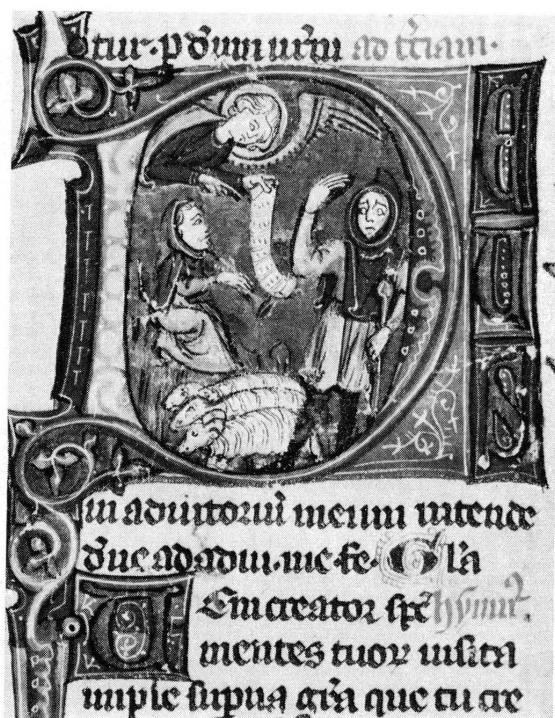 tur · p dñum nr̃m ad tc̃iam ·
D
E
U
S
in adiutoriũ meum intende
dñe ad adiu · me · fe · Gl̃a
Eni creator spc̃ hymn᷒.
mentes tuoꝝ uisita
imple sup̃na gr̃a que tu cre